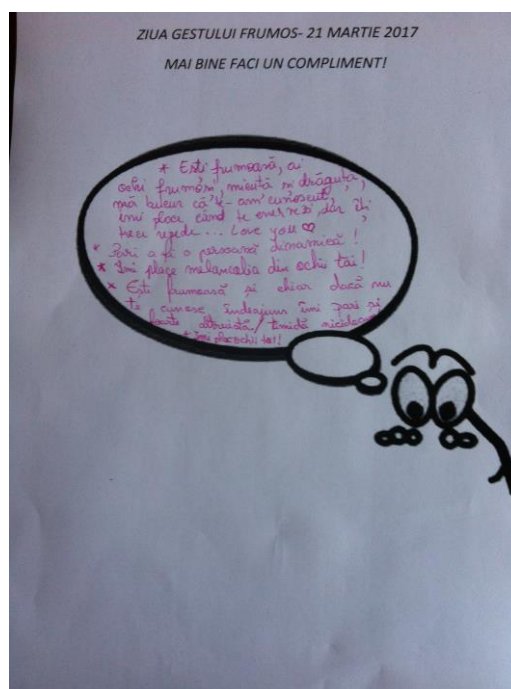 ZIUA GESTULUI FRUMOS- 21 MARTIE 2017
MAI BINE FACI UN COMPLIMENT!
* Ești frumoasă, ai
ochi frumoși, micuță și drăguță,
mă bucur că te-am cunoscut,
îmi place când te enervezi, dar îți
trece repede... Love you ♡
* Pari a fi o persoană dinamică!
* Îmi place melancolia din ochii tăi!
* Ești frumoasă și chiar dacă nu
te cunosc îndeajuns îmi pari și
foarte altruistă/ timidă
* Îmi plac ochii tăi!